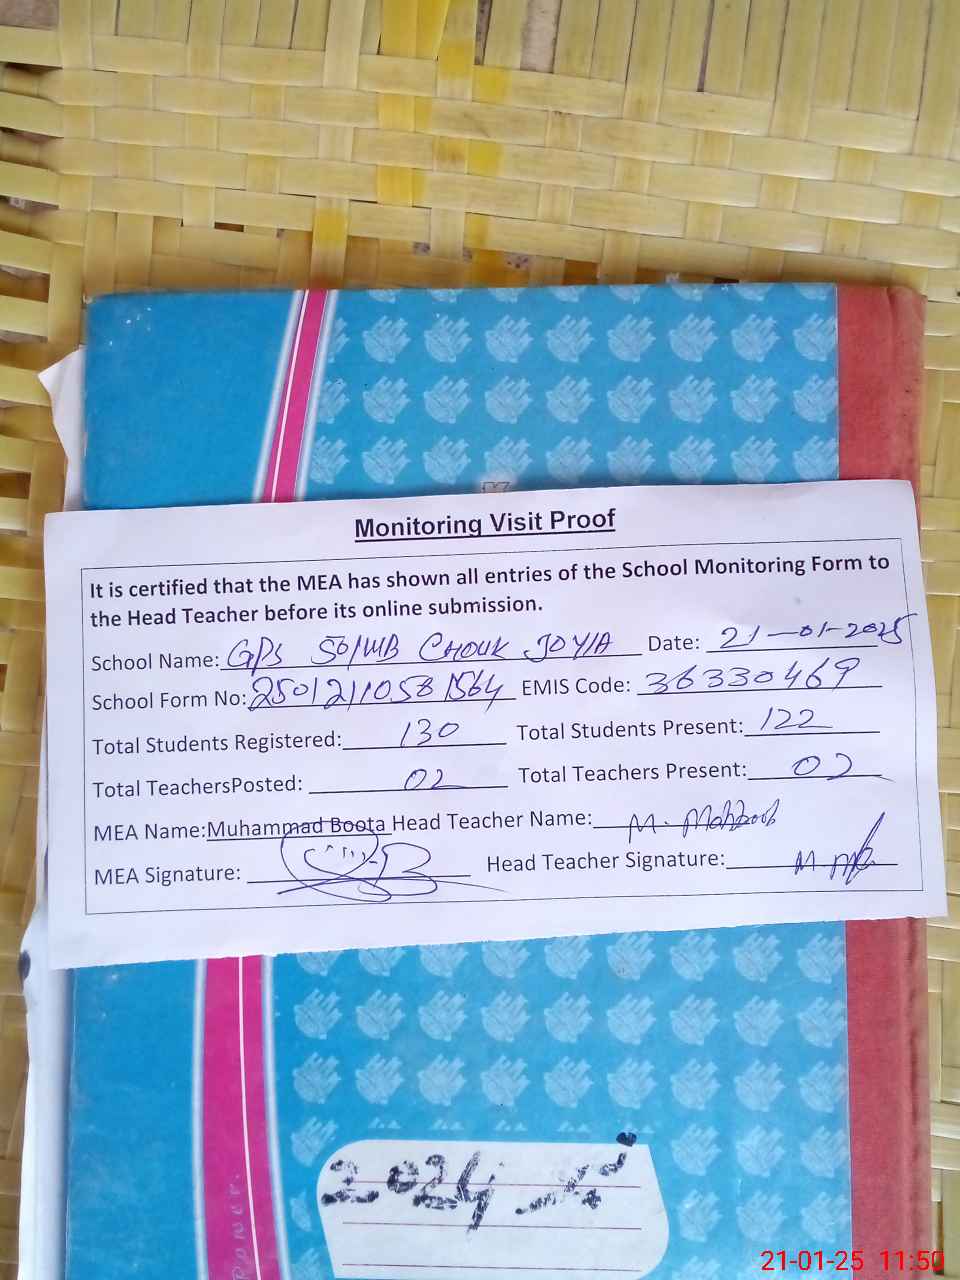 Monitoring Visit Proof
It is certified that the MEA has shown all entries of the School Monitoring Form to
the Head Teacher before its online submission.
School Name: GPS 50/WB CHOUK JOYIA Date: 21-01-2025
School Form No: 25012110581564 EMIS Code: 36330469
Total Students Registered: 130 Total Students Present: 122
Total TeachersPosted: 02 Total Teachers Present: 02
MEA Name:Muhammad Boota Head Teacher Name: M. Mahboob
MEA Signature: Head Teacher Signature:
2024
21-01-25 11:50